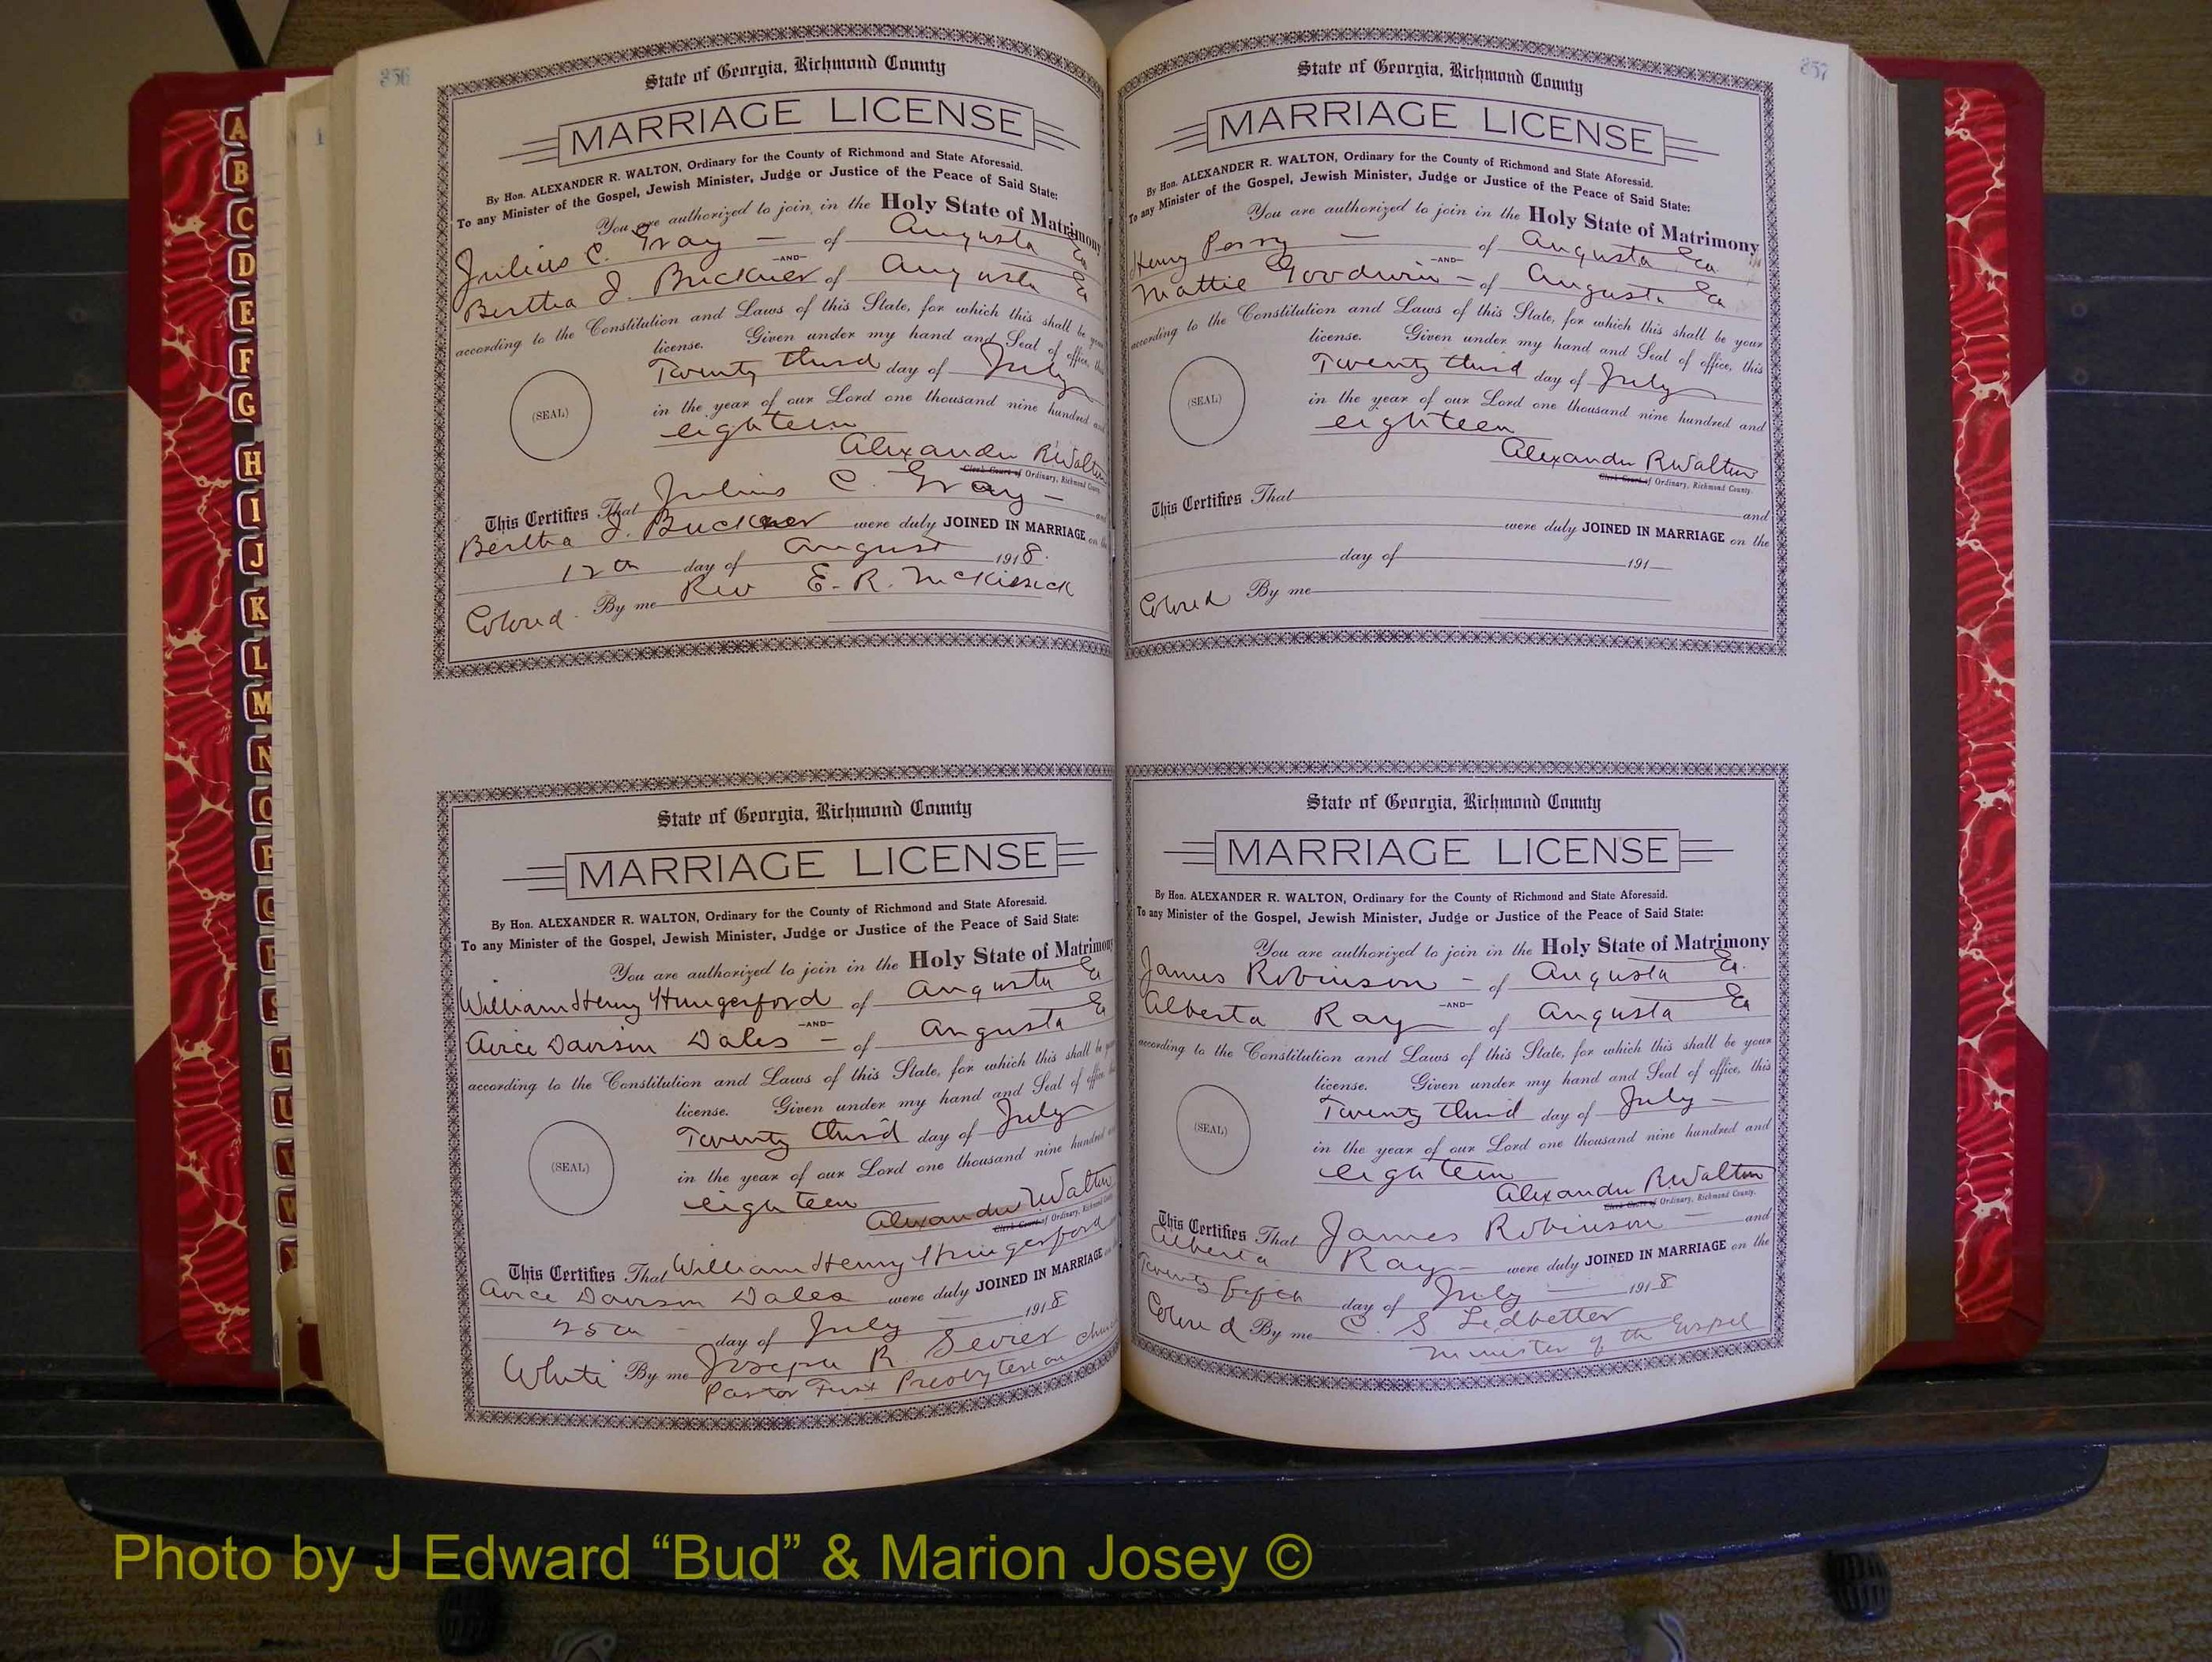 A
B
C
D
E
F
G
H
I
J
K
L
M
N
O
P
Q
R
S
T
U
V
W
356
State of Georgia, Richmond County
MARRIAGE LICENSE
By Hon. ALEXANDER R. WALTON, Ordinary for the County of Richmond and State Aforesaid.
To any Minister of the Gospel, Jewish Minister, Judge or Justice of the Peace of Said State:
You are authorized to join in the Holy State of Matrimony
Julius C. Gray — of Augusta Ga
—AND—
Bertha J. Buckner of Augusta Ga
according to the Constitution and Laws of this State, for which this shall be your
license. Given under my hand and Seal of office, this
Twenty third day of July
(SEAL)
in the year of our Lord one thousand nine hundred and
eighteen
Alexander R Walton
Clerk Court of Ordinary, Richmond County.
This Certifies That Julius C. Gray — and
Bertha J. Buckner were duly JOINED IN MARRIAGE on the
12th day of August 1918.
Colored. By me Rev E. R. McKissick
State of Georgia, Richmond County
MARRIAGE LICENSE
By Hon. ALEXANDER R. WALTON, Ordinary for the County of Richmond and State Aforesaid.
To any Minister of the Gospel, Jewish Minister, Judge or Justice of the Peace of Said State:
You are authorized to join in the Holy State of Matrimony
William Henry Hungerford of Augusta Ga
—AND—
Davison Dales — of Augusta Ga
according to the Constitution and Laws of this State, for which this shall be your
license. Given under my hand and Seal of office this
Twenty third day of July
(SEAL)
in the year of our Lord one thousand nine hundred and
eighteen
Alexander R Walton
Clerk Court of Ordinary, Richmond County
This Certifies That William Henry Hungerford
Davison Dales were duly JOINED IN MARRIAGE on the
25th — day of July — 1918
White By me Joseph R. Sevier
Pastor First Presbyterian church
357
State of Georgia, Richmond County
MARRIAGE LICENSE
By Hon. ALEXANDER R. WALTON, Ordinary for the County of Richmond and State Aforesaid.
To any Minister of the Gospel, Jewish Minister, Judge or Justice of the Peace of Said State:
You are authorized to join in the Holy State of Matrimony
Henry Perry — of Augusta Ga
—AND—
Mattie Goodwin — of Augusta Ga
according to the Constitution and Laws of this State, for which this shall be your
license. Given under my hand and Seal of office, this
Twenty third day of July
(SEAL)
in the year of our Lord one thousand nine hundred and
eighteen
Alexander R Walton
Clerk Court of Ordinary, Richmond County.
This Certifies That and
were duly JOINED IN MARRIAGE on the
day of 191
Colored By me
State of Georgia, Richmond County
MARRIAGE LICENSE
By Hon. ALEXANDER R. WALTON, Ordinary for the County of Richmond and State Aforesaid.
To any Minister of the Gospel, Jewish Minister, Judge or Justice of the Peace of Said State:
You are authorized to join in the Holy State of Matrimony
James Robinson — of Augusta Ga.
—AND—
Alberta Ray of Augusta Ga
according to the Constitution and Laws of this State, for which this shall be your
license. Given under my hand and Seal of office, this
Twenty third day of July —
(SEAL)
in the year of our Lord one thousand nine hundred and
eighteen
Alexander R Walton
Clerk Court of Ordinary, Richmond County.
This Certifies That James Robinson — and
Alberta Ray — were duly JOINED IN MARRIAGE on the
Twenty fifth day of July — 1918
Colored By me C. S. Ledbetter
Minister of the Gospel
Photo by J Edward “Bud” & Marion Josey ©